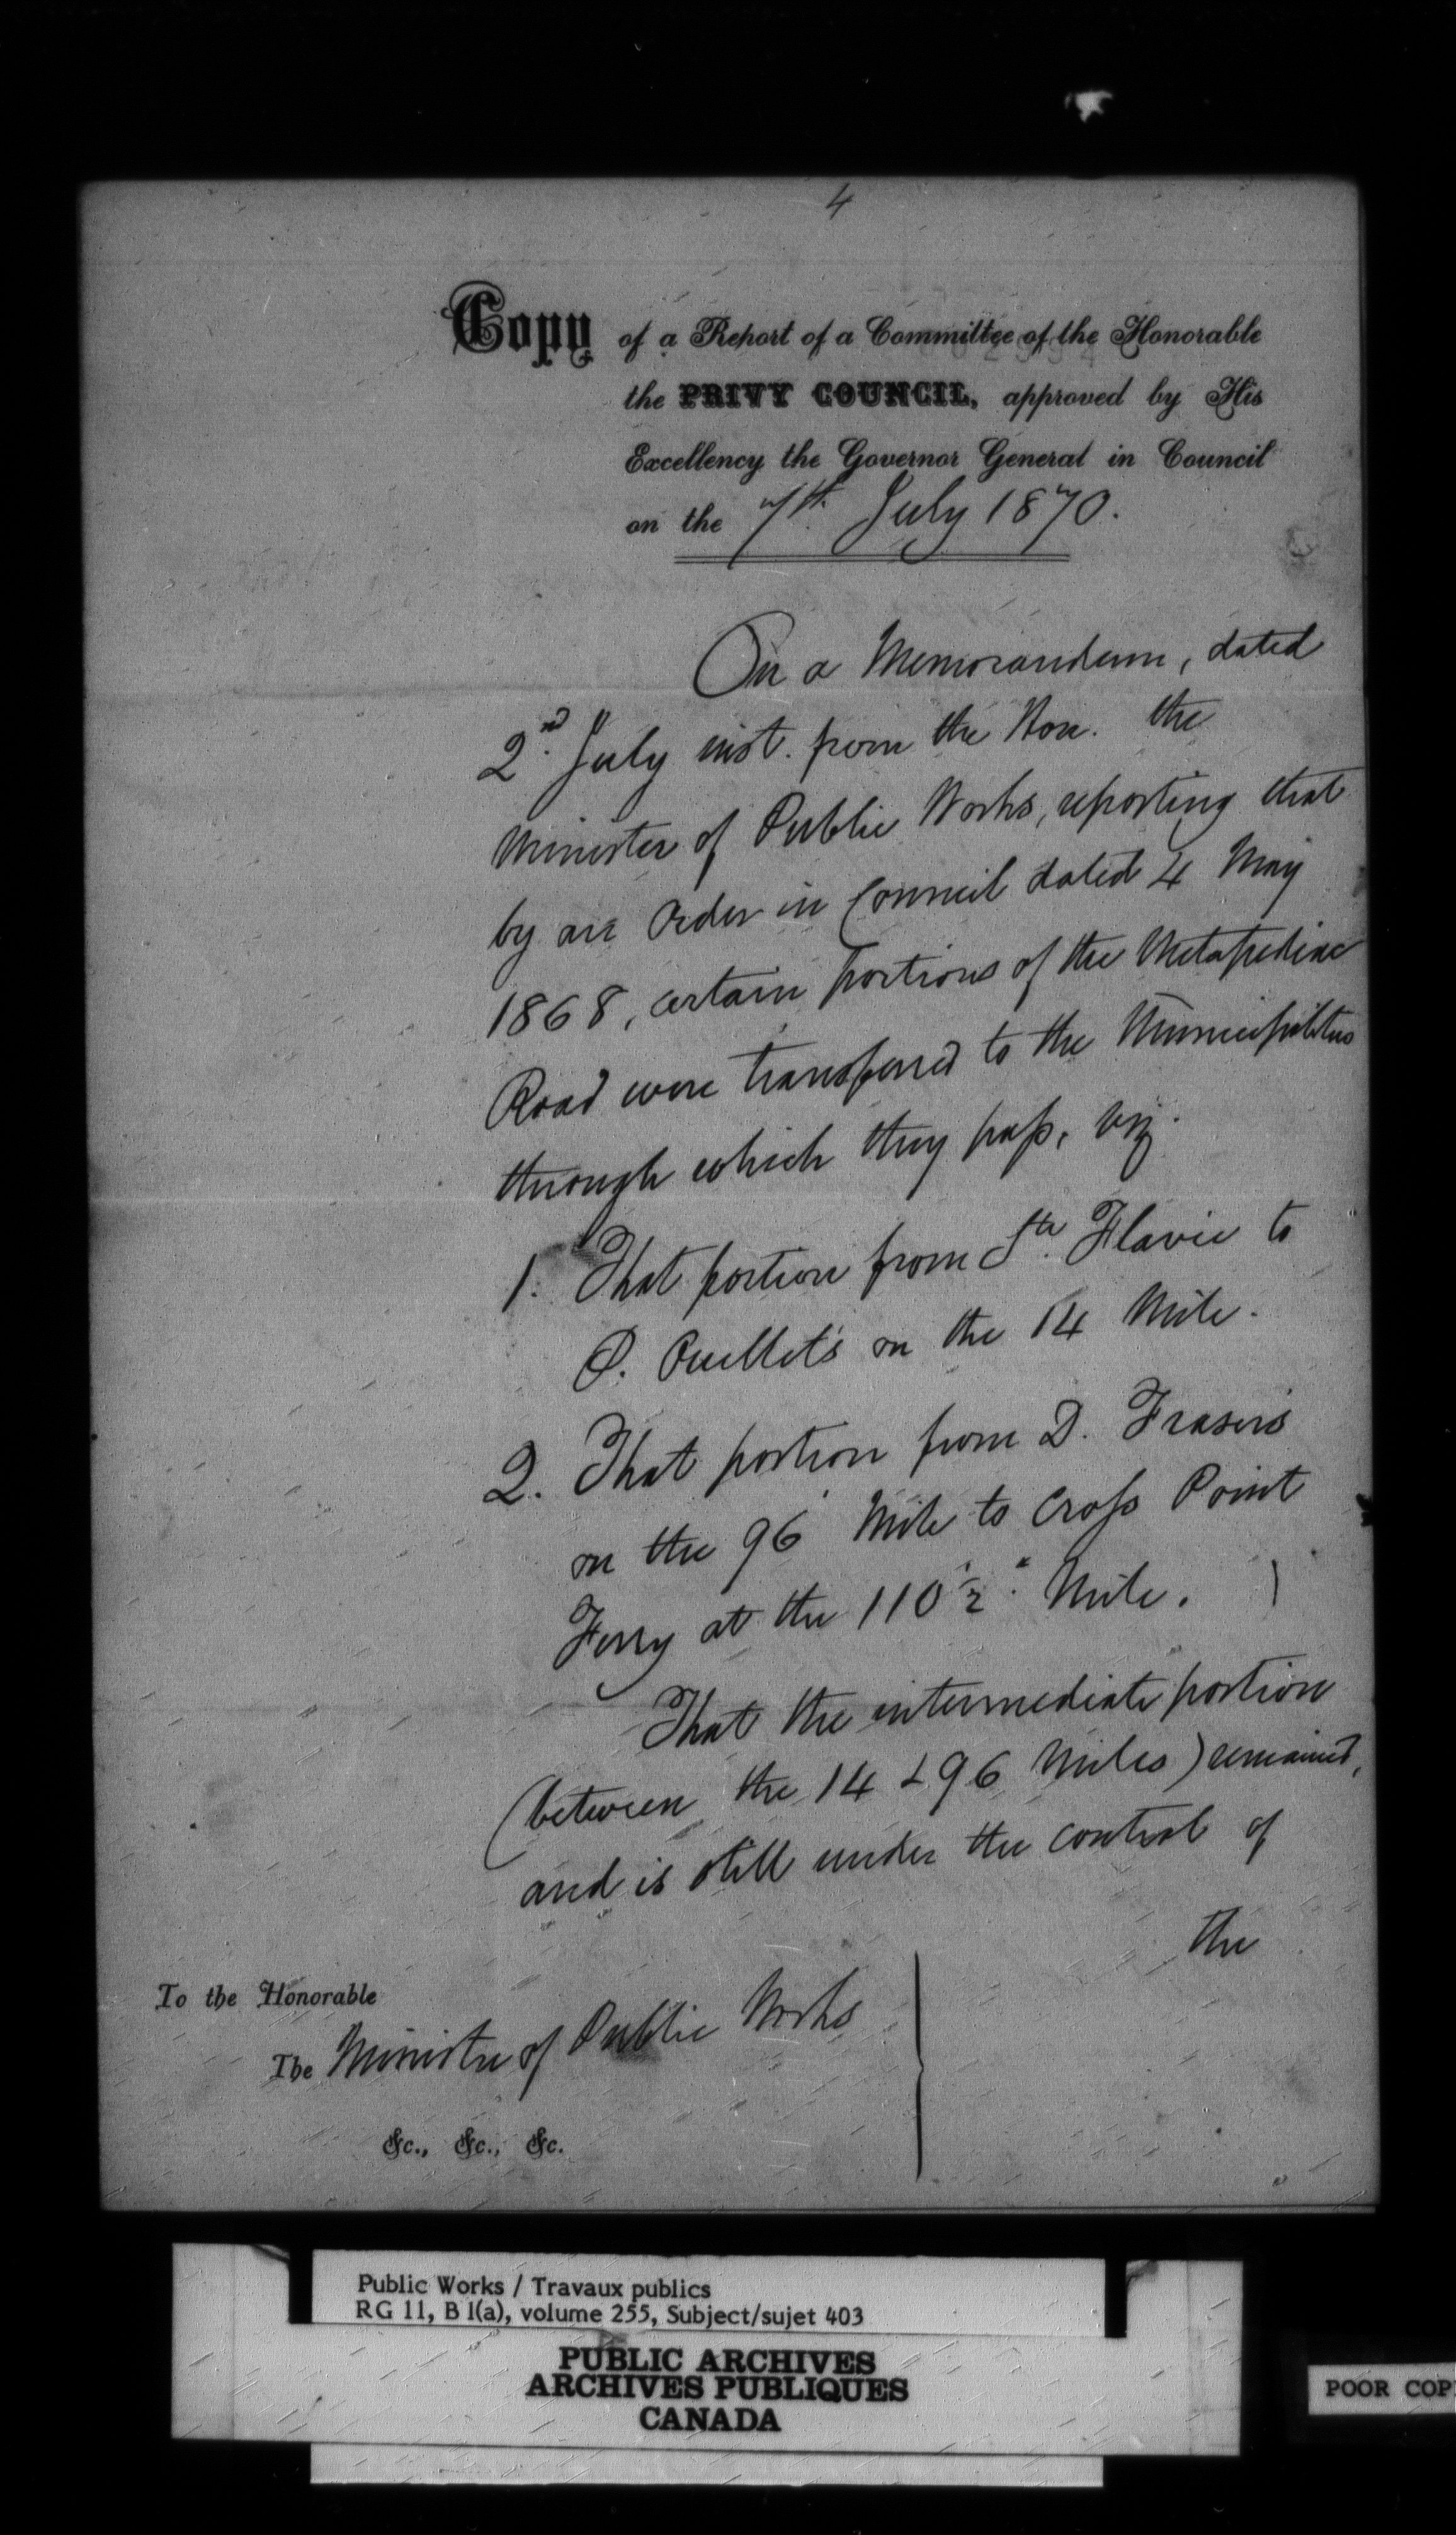 4
Copy of a Report of a Committee of the Honorable
the PRIVY COUNCIL, approved by His
Excellency the Governor General in Council
on the 7th July 1870.
On a Memorandum, dated
2nd July inst. from the Hon. the
Minister of Public Works, reporting that
by an Order in Council dated 4 May
1868, certain portions of the Metapediac
Road were transferred to the Municipalities
through which they pass, viz.
1. That portion from Ste Flavie to
P. Ouellet's on the 14 Mile.
2. That portion from D. Frasers
on the 96 Mile to Cross Point
Ferry at the 110 1/2 Mile.
That the intermediate portion
(between the 14 & 96 Miles) remained,
and is still under the control of
the
To the Honorable
The Minister of Public Works
&c., &c., &c.
Public Works / Travaux publics
RG 11, B 1(a), volume 255, Subject/sujet 403
PUBLIC ARCHIVES
ARCHIVES PUBLIQUES
CANADA
POOR COP